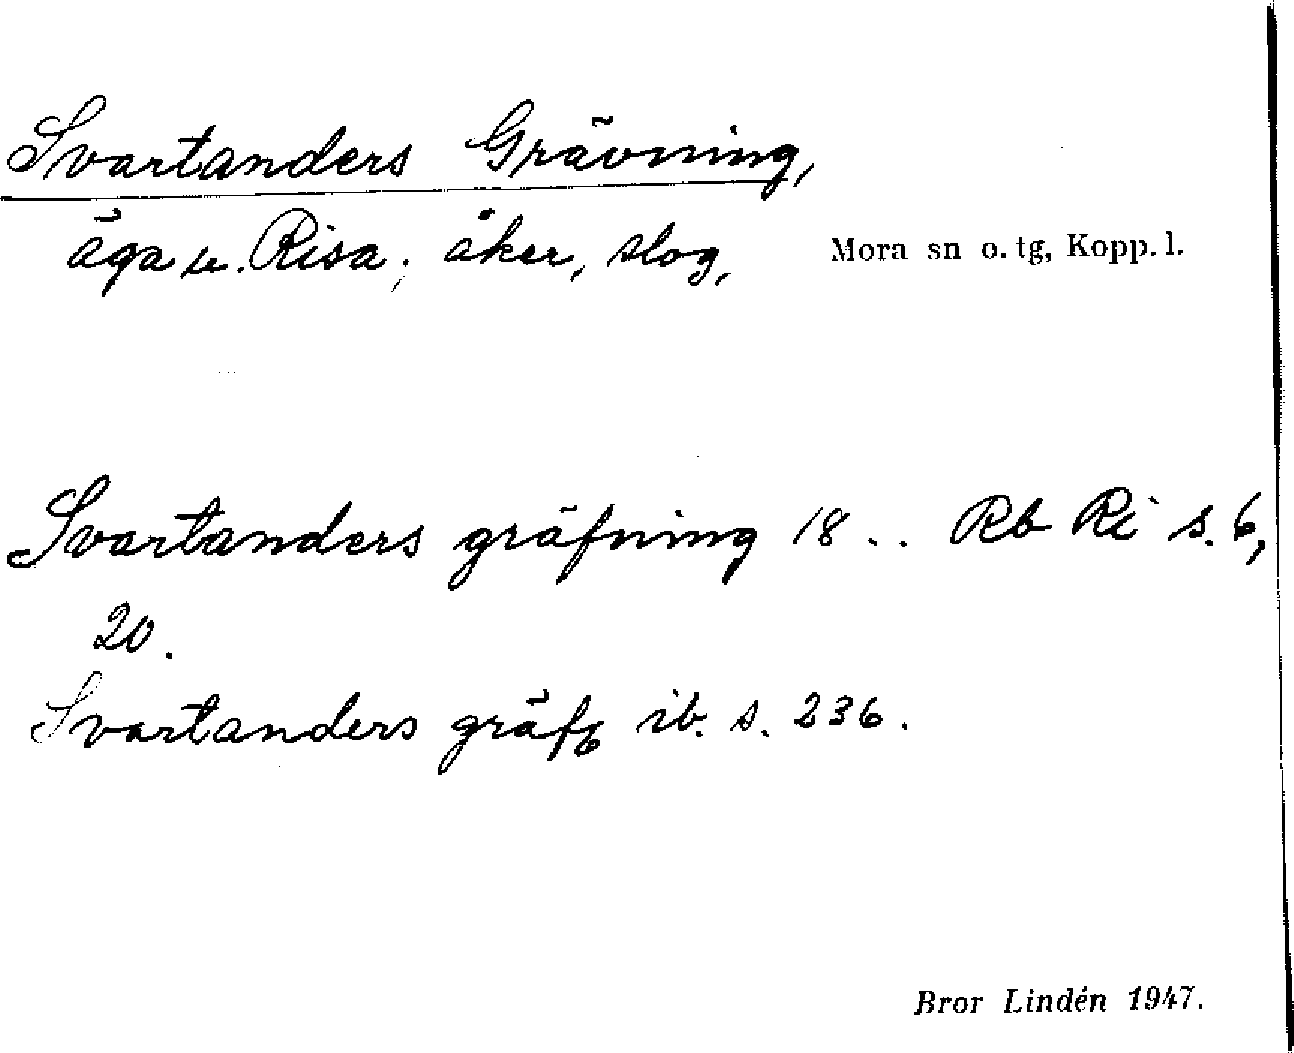 Svartanders Grävning,
äga u. Risa; åker, slog, Mora sn o. tg, Kopp. l.
Svartanders gräfning 18.. Rb Ri s. 6,
20.
Svartanders gräfg ib. s. 236.
Bror Lindén 1947.